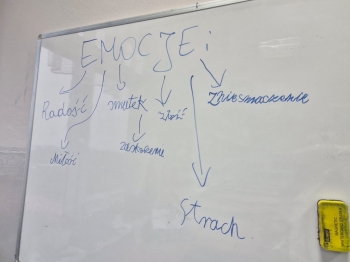 EMOCJE:
Radość smutek złość Zniesmaczenie
Miłość
Strach.